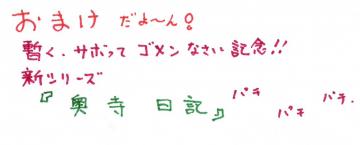 おまけ だよ〜ん!
暫く、サボって ゴメンなさい記念!!
新シリーズ
『奥寺日記』 パチ パチ パチ.